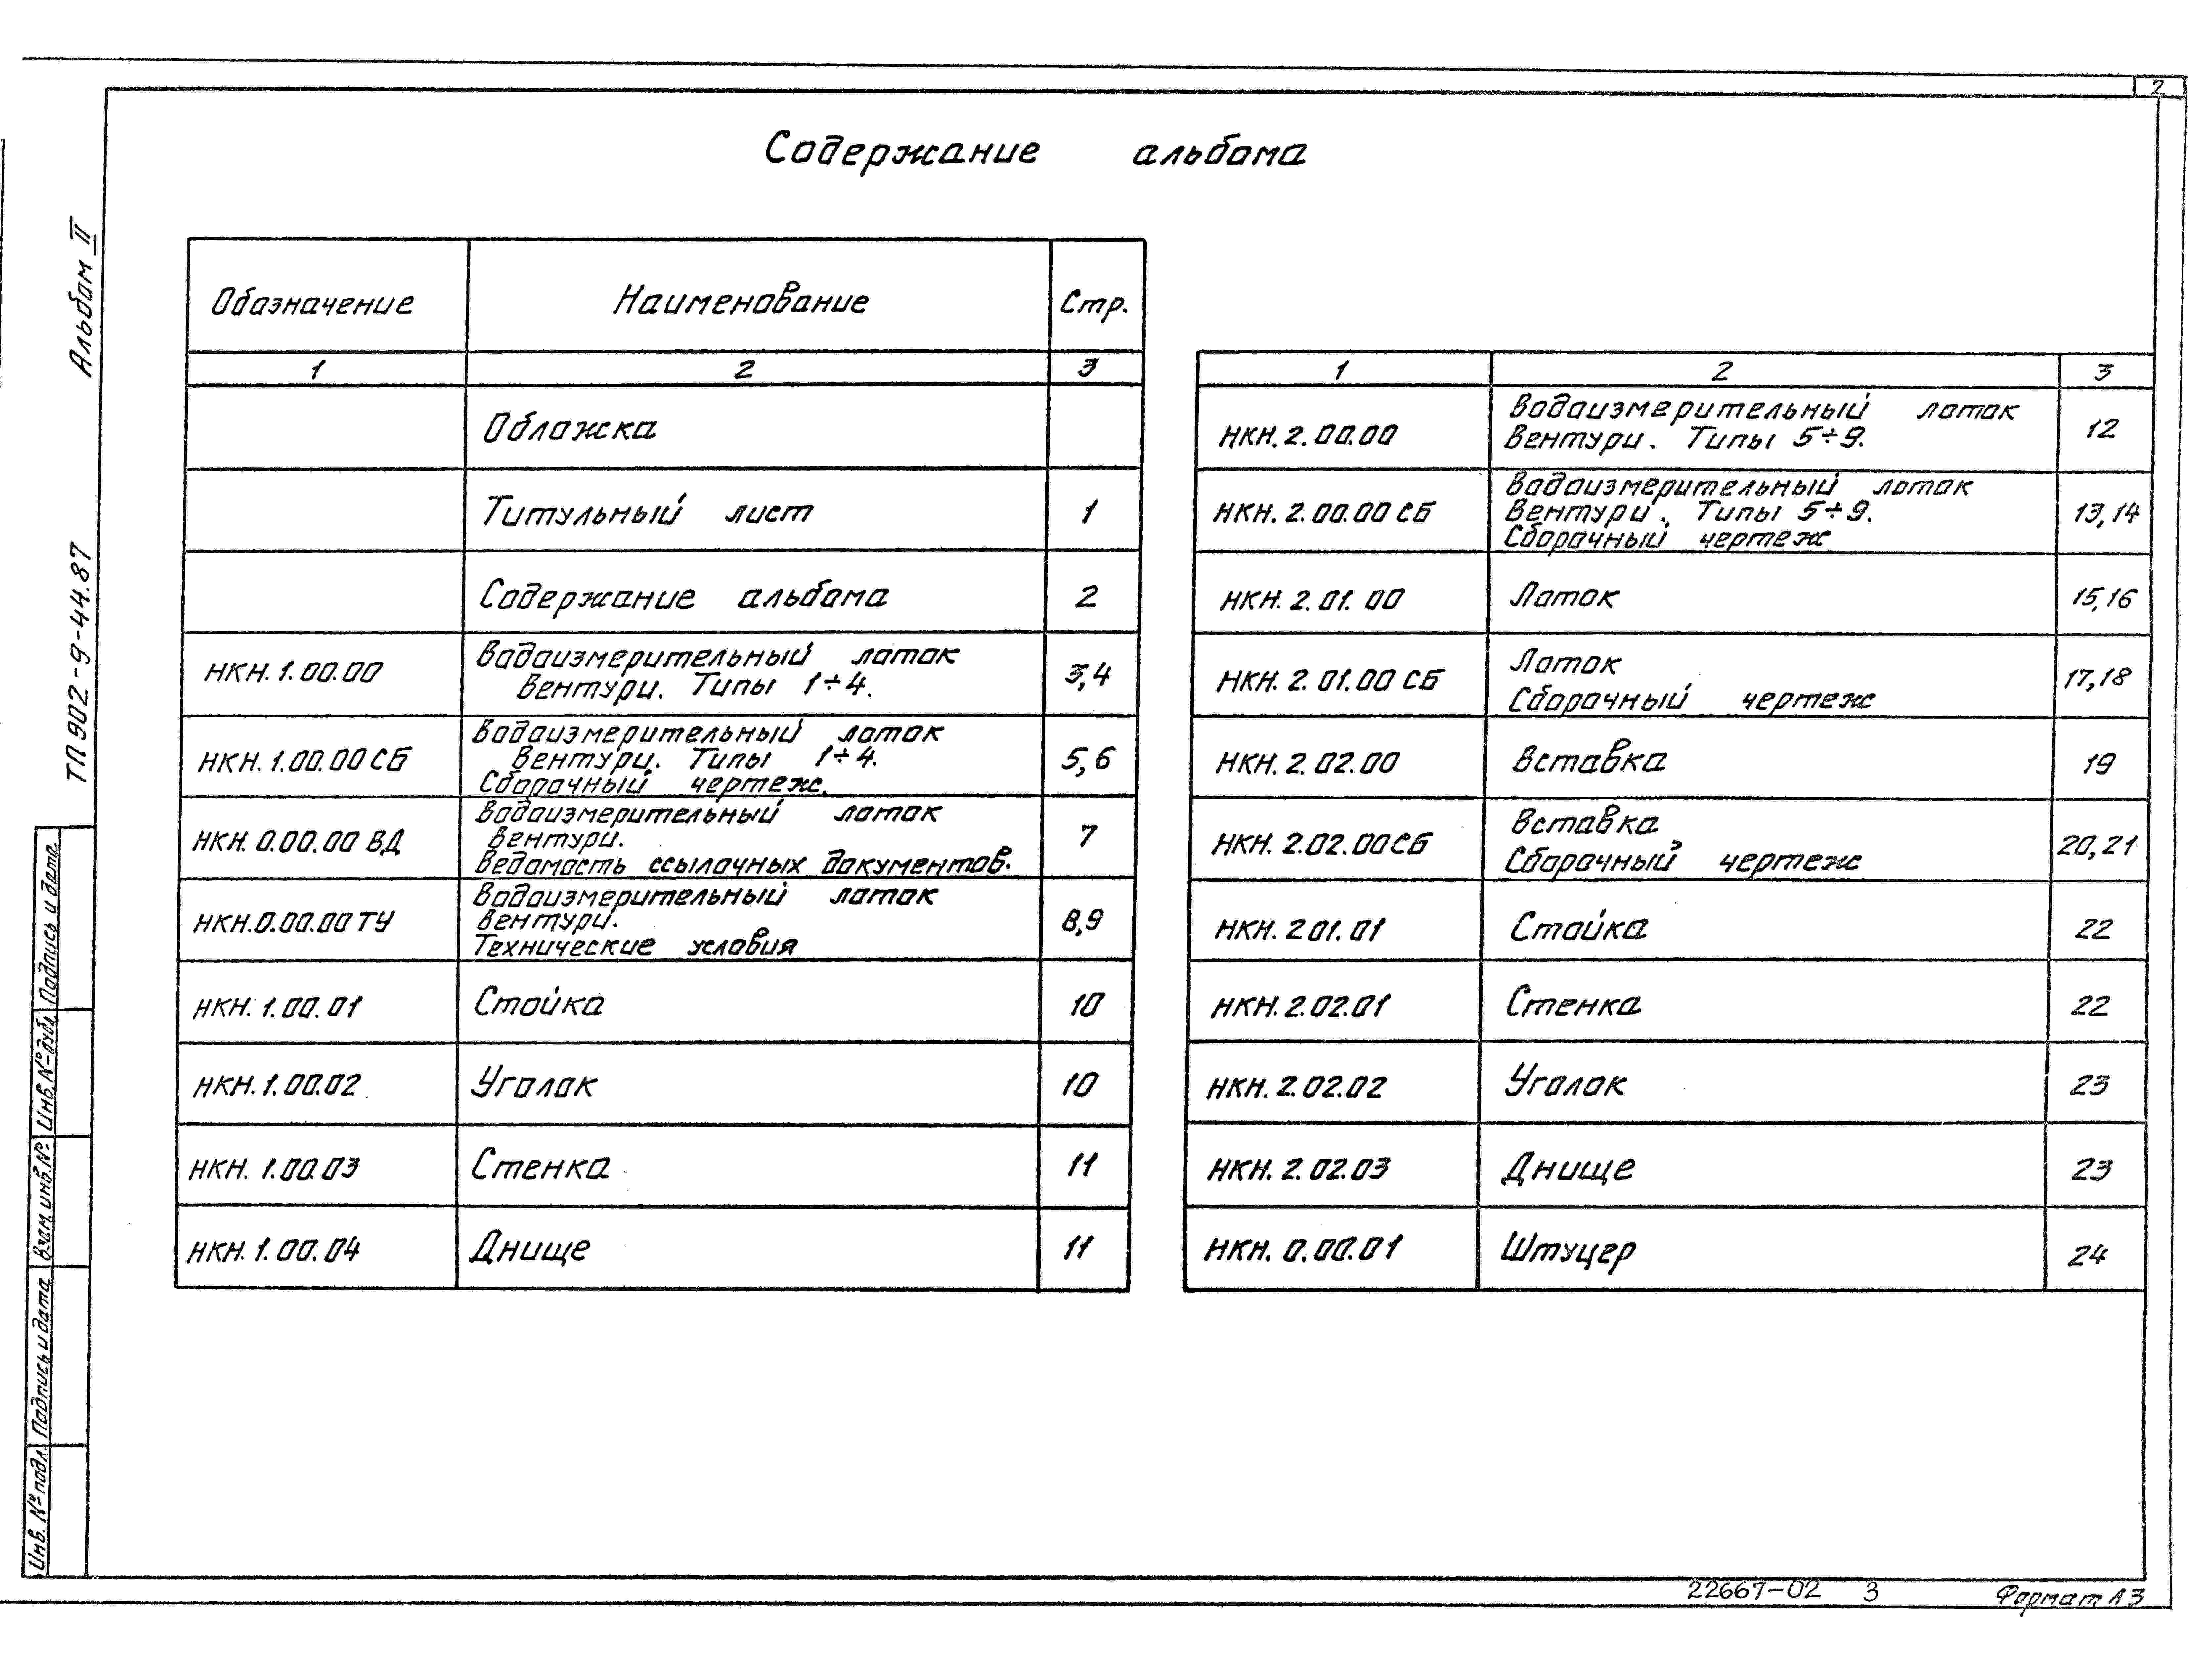 2
Содержание альбома
Альбом II
ТП 902-9-44.87
Обозначение Наименование Стр.
1 2 3
Обложка
Титульный лист 1
Содержание альбома 2
НКН. 1.00.00 Водоизмерительный лоток Вентури. Типы 1÷4. 3,4
НКН. 1.00.00 СБ Водоизмерительный лоток Вентури. Типы 1÷4. Сборочный чертеж. 5,6
НКН. 0.00.00 ВД Водоизмерительный лоток Вентури. Ведомость ссылочных документов. 7
НКН.0.00.00 ТУ Водоизмерительный лоток Вентури. Технические условия 8,9
НКН. 1.00.01 Стойка 10
НКН. 1.00.02 Уголок 10
НКН. 1.00.03 Стенка 11
НКН. 1.00.04 Днище 11
1 2 3
НКН. 2.00.00 Водоизмерительный лоток Вентури. Типы 5÷9. 12
НКН. 2.00.00 СБ Водоизмерительный лоток Вентури. Типы 5÷9. Сборочный чертеж 13,14
НКН. 2.01.00 Лоток 15,16
НКН. 2.01.00 СБ Лоток Сборочный чертеж 17,18
НКН. 2.02.00 Вставка 19
НКН. 2.02.00 СБ Вставка Сборочный чертеж 20,21
НКН. 2 01.01 Стойка 22
НКН. 2.02.01 Стенка 22
НКН. 2.02.02 Уголок 23
НКН. 2.02.03 Днище 23
НКН. 0.00.01 Штуцер 24
Инв. № подл. Подпись и дата Взам. инв. № Инв. № дубл. Подпись и дата
22667-02 3 Формат А3